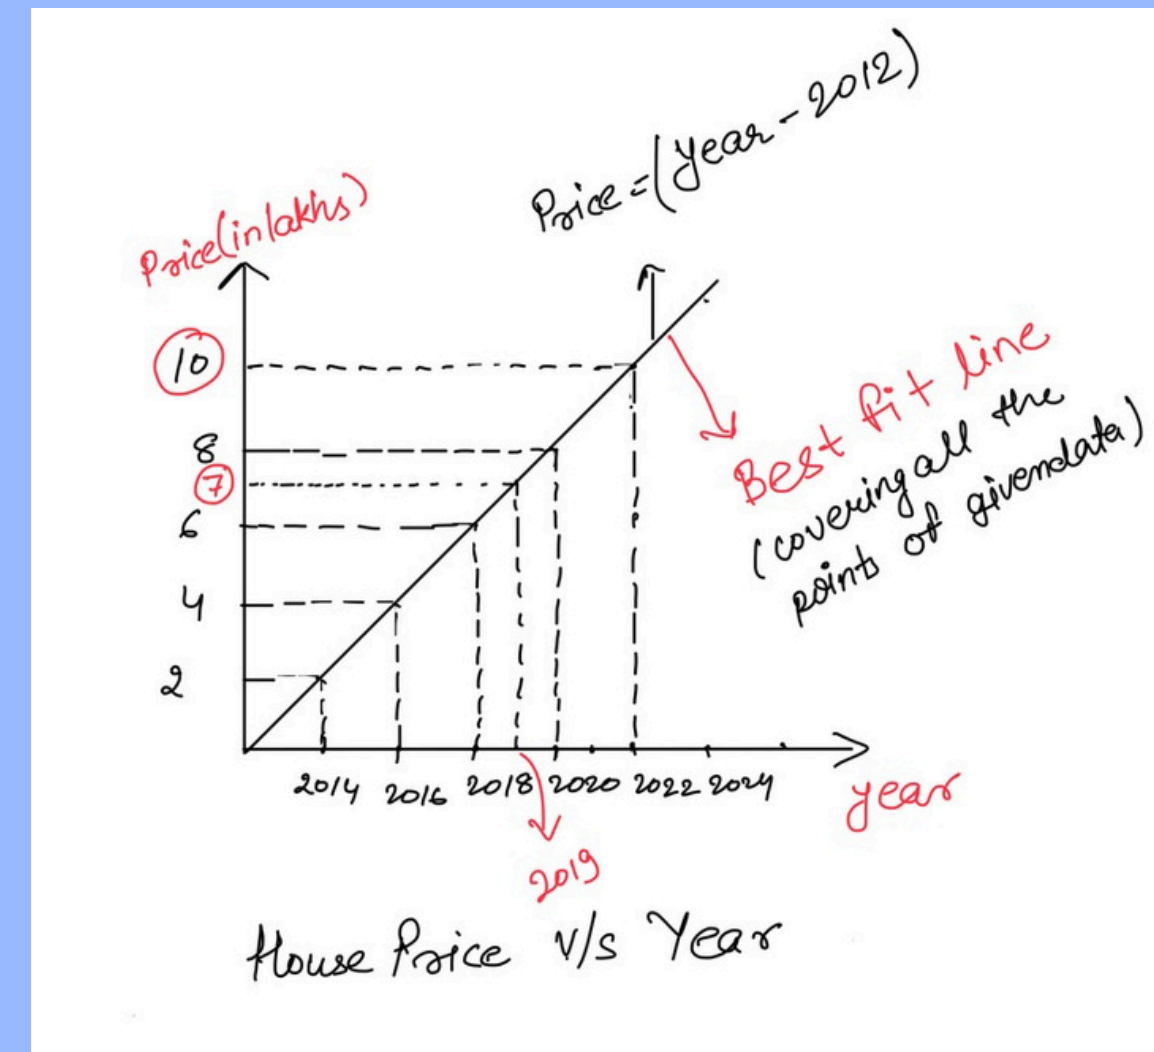 Price=(year-2012)
Price(in lakhs)
10
8
7
6
4
2
Best fit line
(covering all the
points of given data)
2014 2016 2018 2020 2022 2024
year
2019
House Price v/s Year